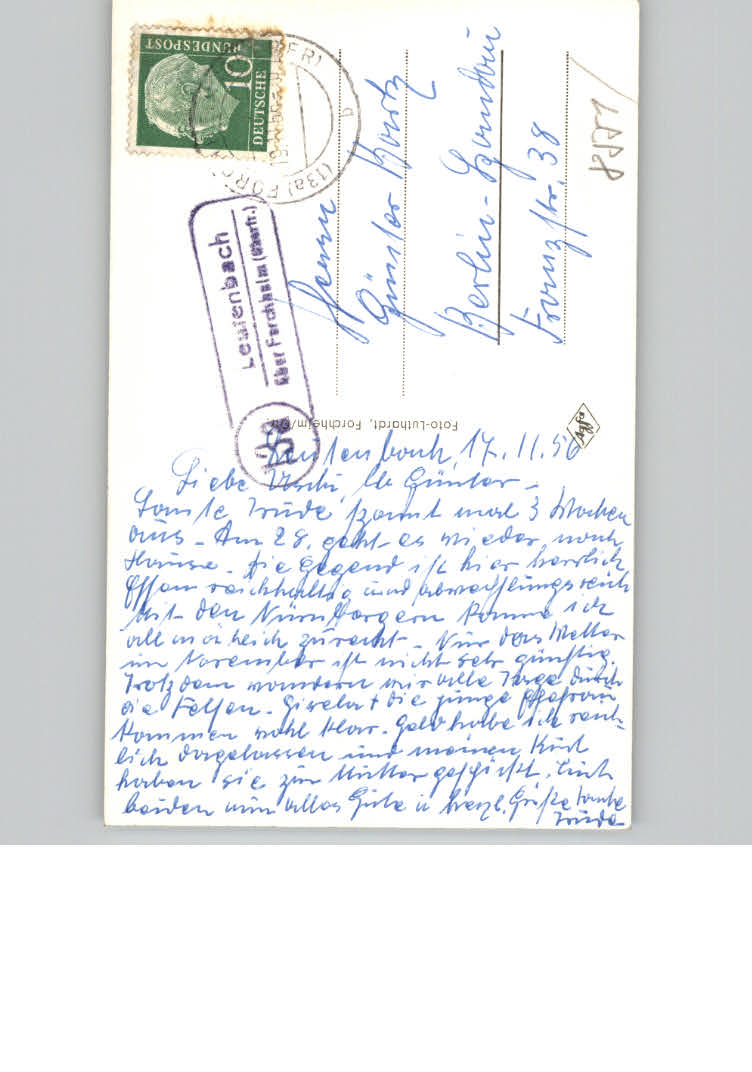 DEUTSCHE
BUNDESPOST
10
(13a) FORC
Leutenbach
über Forchheim (Oberfr.)
13a
Herrn
Günter
Berlin-Spandau
Franzstr. 38
Foto-Luthardt, Forchheim/Ofr.
Agfa
Leutenbach, 17.11.56
Liebe Uschi, lb Günter –
Tante Trude spannt mal 3 Wochen
aus – Am 28. geht es wieder nach
Hause – die Gegend ist hier herrlich
Essen reichhaltig und abwechslungsreich
Mit den Nürnbergern komme ich
zurecht – Nur das Wetter
im November ist nicht sehr günstig.
Trotzdem wandern wir alle Tage durch
die Felsen – Gisela + die junge Ehefrau
kommen wohl klar – Geld habe ich reich-
lich dagelassen und meinen Kurt
haben sie zur Mutter geschickt. Euch
beiden nun alles Gute u herzl. Grüße Tante
Trude